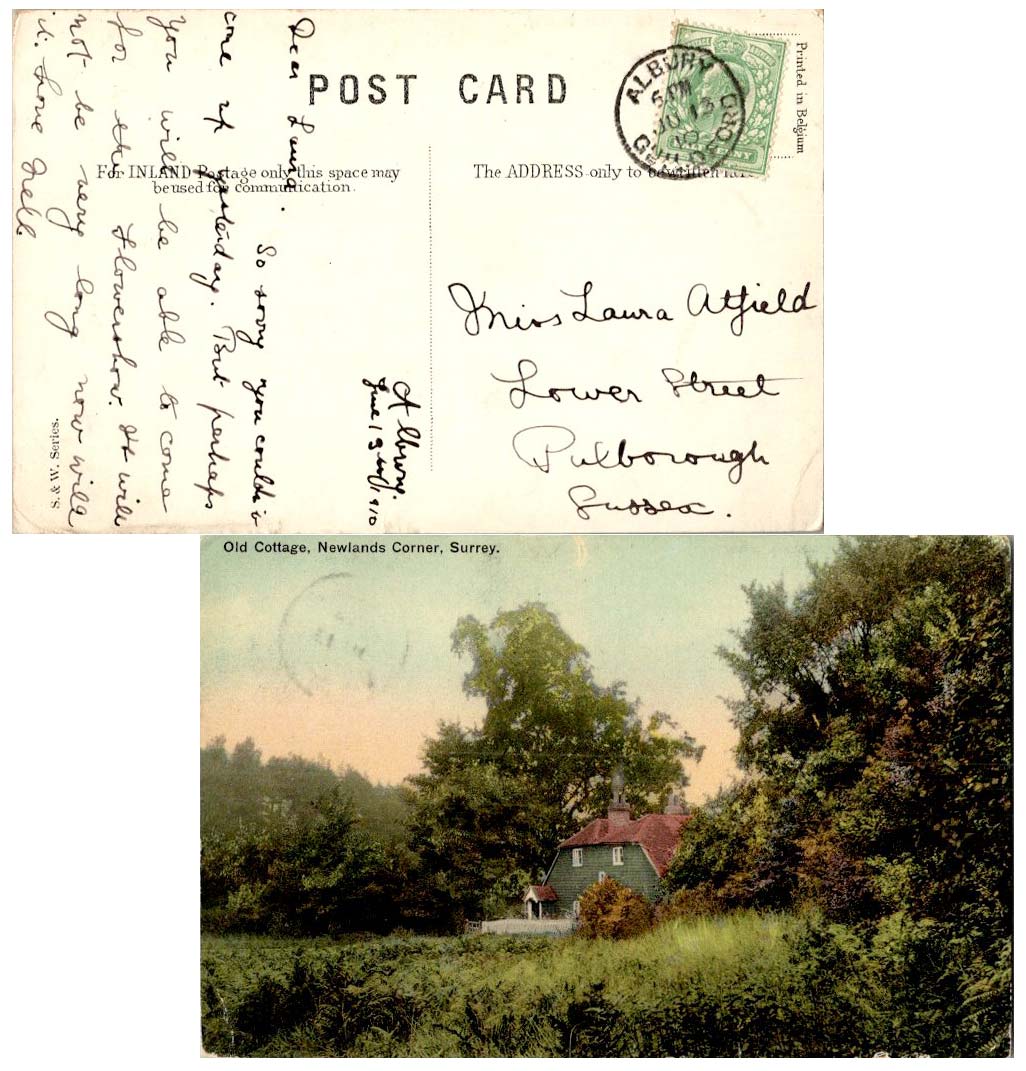 POST CARD
Printed in Belgium
ALBURY
5 PM
JU 13
10
GUILDFORD
For INLAND Postage only this space may
be used for communication.
The ADDRESS only to be written here.
Albury.
June 13th/1910
Dear Laura.
So sorry you couldn't
come up yesterday. But perhaps
You will be able to come
for the Flowershow. It will
not be very long now will
it. Love Nell.
S. & W. Series.
Miss Laura Atfield
Lower Street
Pulborough
Sussex.
Old Cottage, Newlands Corner, Surrey.